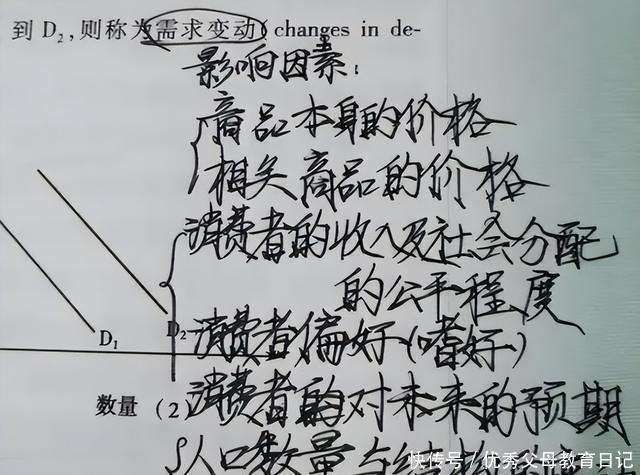 到 D₂,则称为需求变动(changes in de-
影响因素:
商品本身的价格
相关商品的价格
消费者的收入及社会分配
的公平程度
D₁
D₂
消费者偏好(嗜好)
数量 (2)
消费者的对未来的预期
人口数量与结构
快传号/优秀父母教育日记